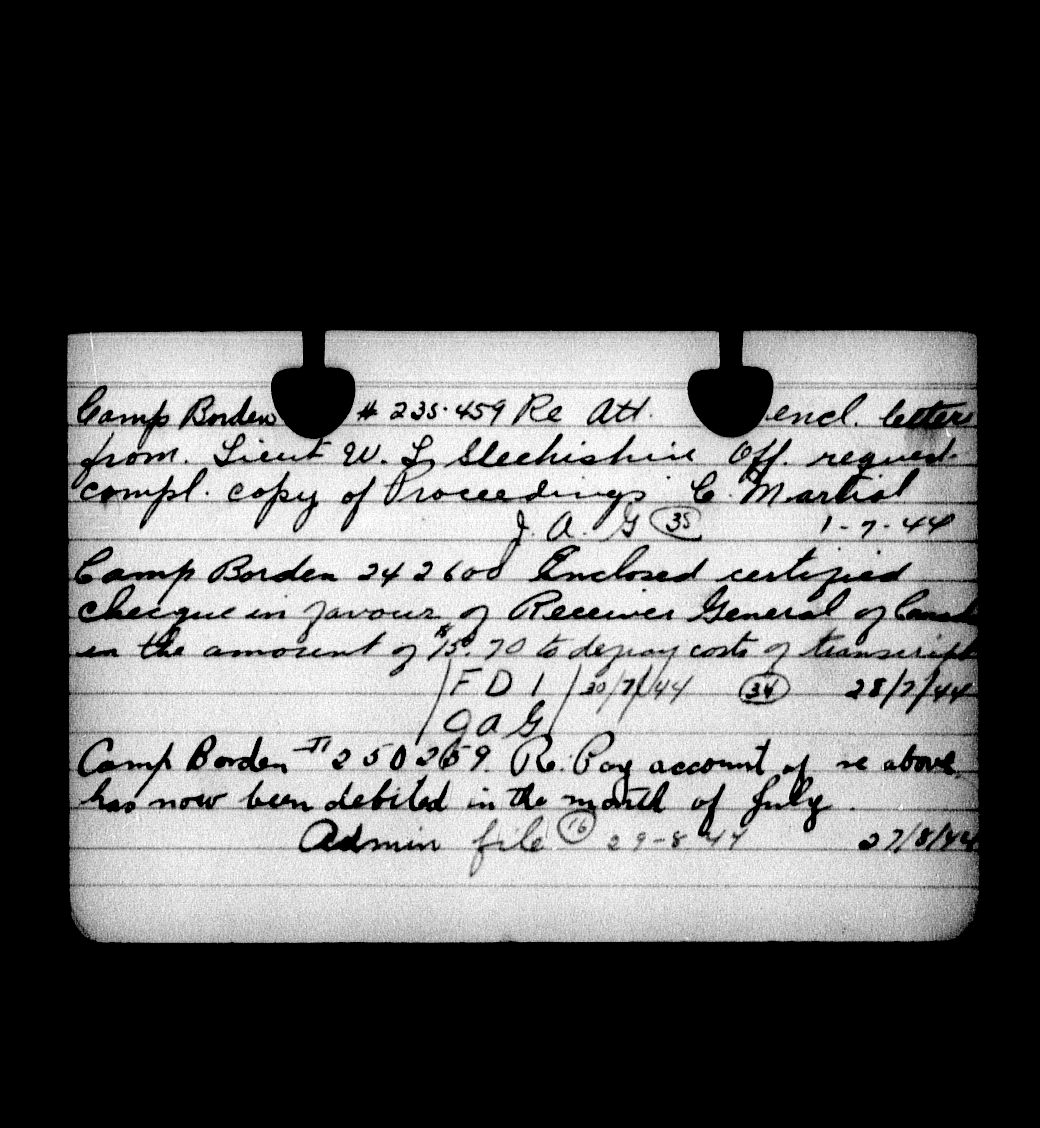 Camp Borden # 235-459 Re Att. encl. letter
from. Lieut W. L. Off. request.
compl. copy of Proceedings C. Martial
J. A. G 35 1-7-44
Camp Borden 242600 Enclosed certified
checque in favour of Receiver General of
in the amount of $15.70 to defray costs of transcript
F D 1 30/7/44 34 28/7/44
J A G
Camp Borden 250269. Re. Pay account of re above
has now been debited in the month of July.
Admin file 16 29-8-44 27/8/44